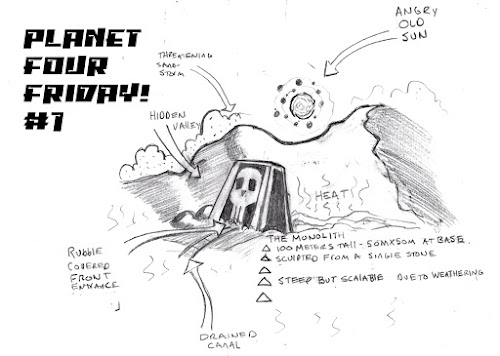 PLANET
FOUR
FRIDAY!
#1
ANGRY
OLD
SUN
THREATENING
SAND-
STORM
HIDDEN
VALLEY
HEAT!
RUBBLE
COVERED
FRONT
ENTRANCE
THE MONOLITH
100 METERS TALL - 50MX50M AT BASE.
SCULPTED FROM A SINGLE STONE
STEEP BUT SCALABLE DUE TO WEATHERING
DRAINED
CANAL